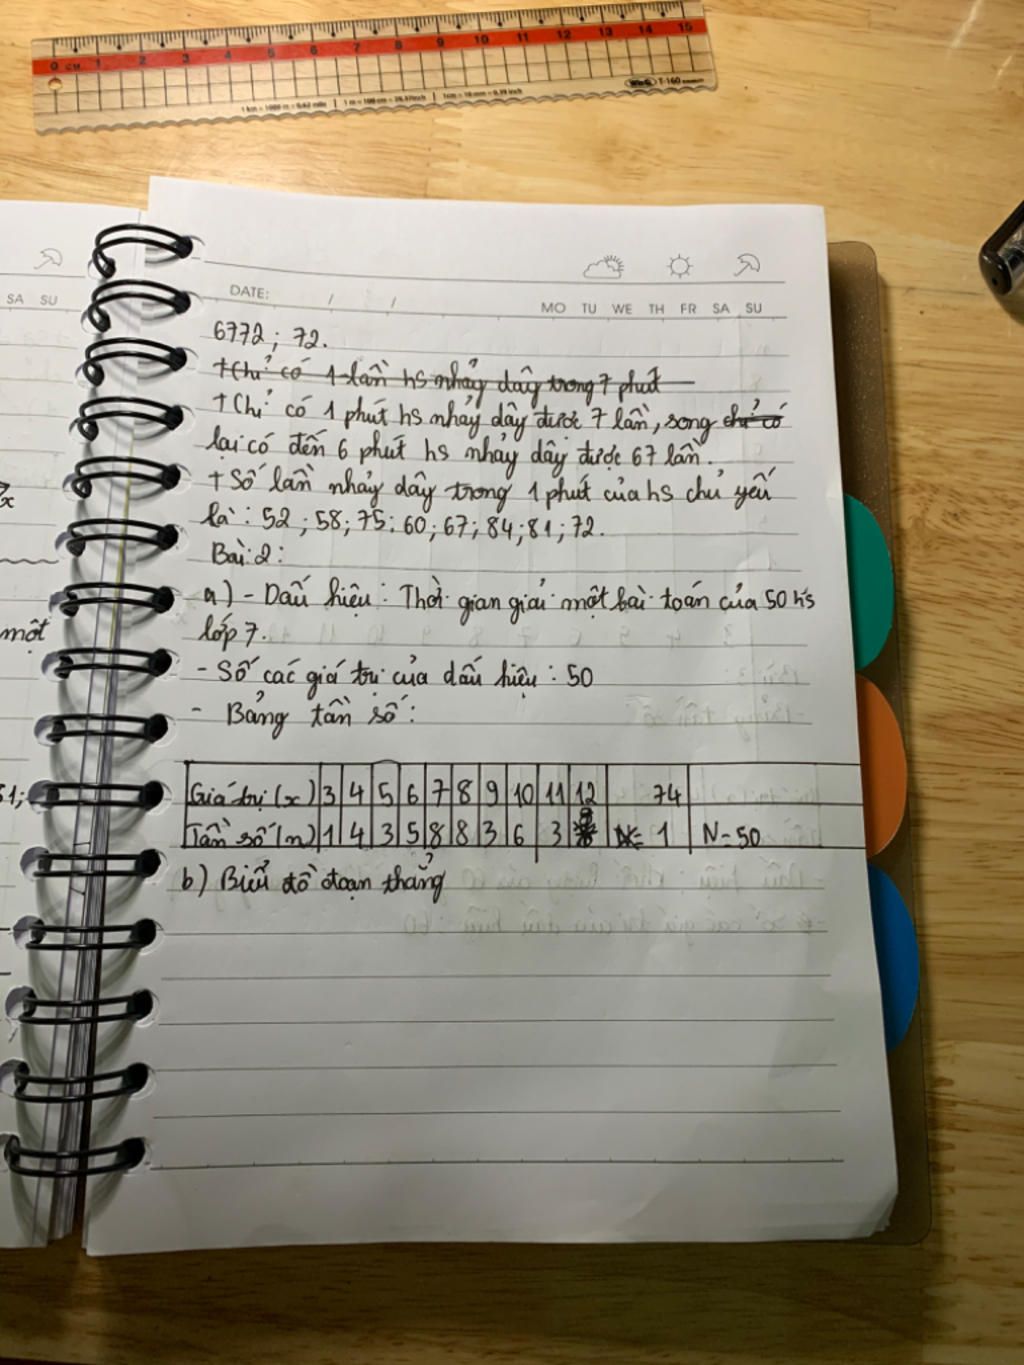 0 CM 1 2 3 4 5 6 7 8 9 10 11 12 13 14 15
WinQ T-160
1 km = 1000 m = 0.62 mile | 1 m = 100 cm = 39.37inch | 1cm = 10 mm = 0.39 inch
SA SU
DATE: / /
MO TU WE TH FR SA SU
6772; 72.
+Chỉ có 1 lần hs nhảy dây trong 7 phút
+Chỉ có 1 phút hs nhảy dây được 7 lần, song chỉ có
lại có đến 6 phút hs nhảy dây được 67 lần.
+ Số lần nhảy dây trong 1 phút của hs chủ yếu
là: 52; 58; 75; 60; 67; 84; 81; 72.
x
Bài 2:
a) - Dấu hiệu: Thời gian giải một bài toán của 50 hs
lớp 7.
một
- Số các giá trị của dấu hiệu: 50
- Bảng tần số:
Giá trị (x) 3 4 5 6 7 8 9 10 11 12 74
Tần số (n) 1 4 3 5 8 8 3 6 3 1 N=50
b) Biểu đồ đoạn thẳng